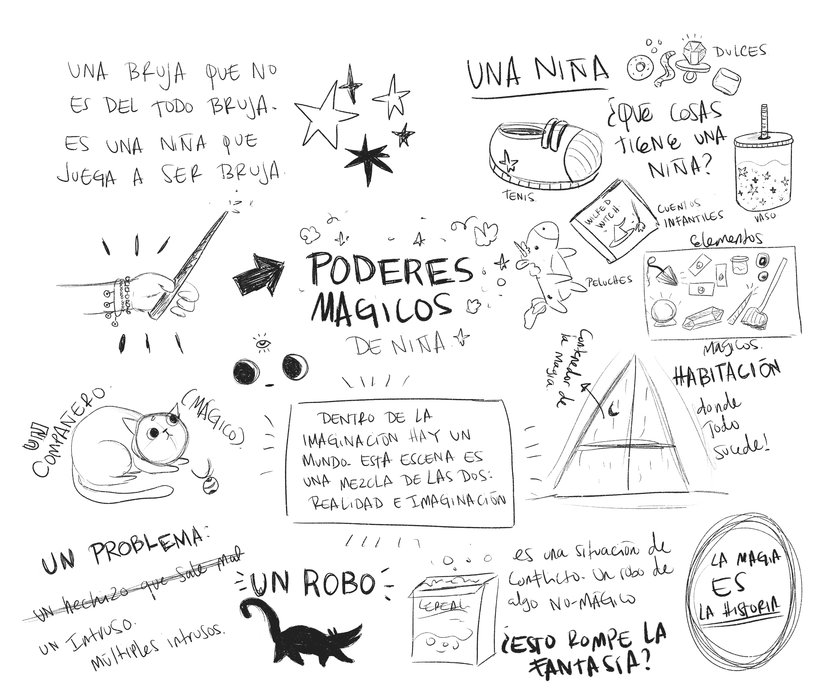 UNA BRUJA QUE NO
ES DEL TODO BRUJA.
ES UNA NIÑA QUE
JUEGA A SER BRUJA.
UNA NIÑA
DULCES
¿QUE COSAS
TIENE UNA
NIÑA?
TENIS
WICKED
WITCH
CUENTOS
INFANTILES
VASO
PELUCHES
Elementos
MAGICOS.
PODERES
MAGICOS
DE NIÑA
Contenedor de
la Magia
HABITACIÓN
donde
Todo
Sucede!
UN
COMPAÑERO.
(MÁGICO)
DENTRO DE LA
IMAGINACIÓN HAY UN
MUNDO. ESTA ESCENA ES
UNA MEZCLA DE LAS DOS:
REALIDAD E IMAGINACIÓN
UN PROBLEMA:
un hechizo que sale mal
un Intruso.
múltiples intrusos.
UN ROBO
CEREAL
es una situación de
conflicto. Un robo de
algo NO-MÁGICO
¿ESTO ROMPE LA
FANTASÍA?
LA MAGIA
ES
LA HISTORIA